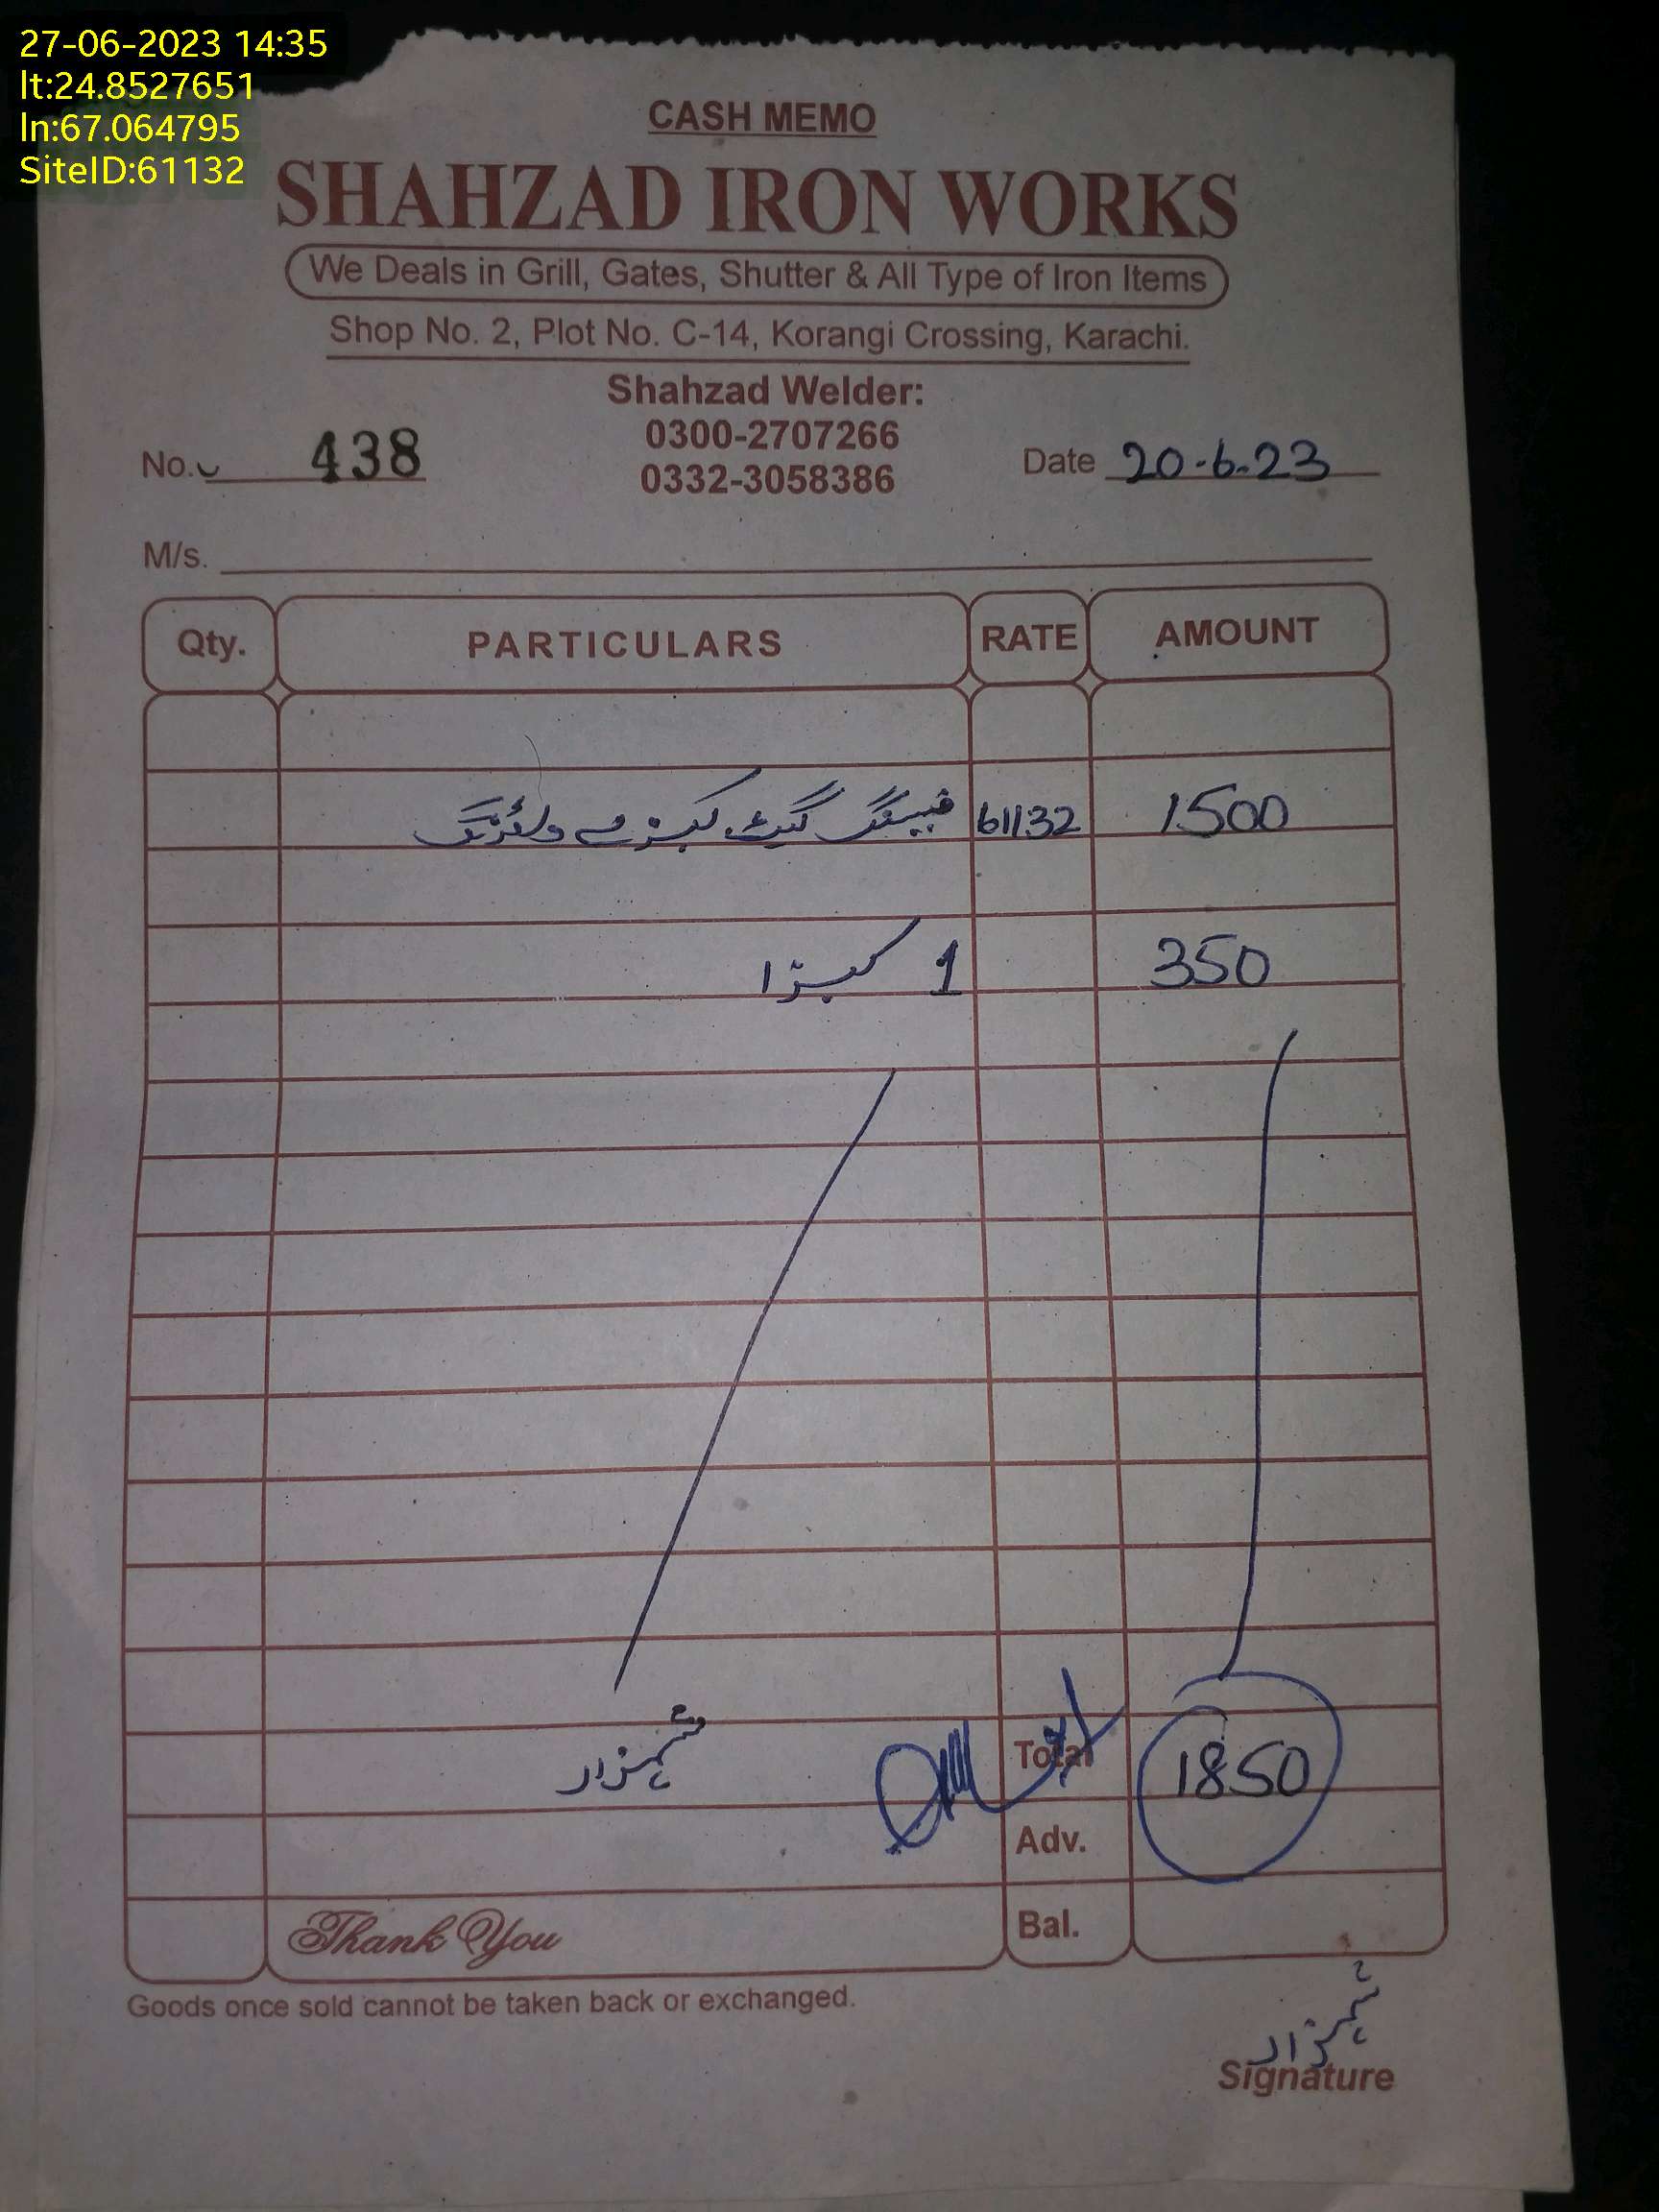 27-06-2023 14:35
lt:24.8527651
ln:67.064795
SiteID:61132
CASH MEMO
SHAHZAD IRON WORKS
We Deals in Grill, Gates, Shutter & All Type of Iron Items
Shop No. 2, Plot No. C-14, Korangi Crossing, Karachi.
Shahzad Welder:
0300-2707266
0332-3058386
No. 438
Date 20-6-23
M/s.
Qty. PARTICULARS RATE AMOUNT
گیٹ ویلڈنگ 61132 1500
1 کبزا 350
شہزاد
Total 1850
Adv.
Bal.
Thank You
Goods once sold cannot be taken back or exchanged.
شہزاد
Signature